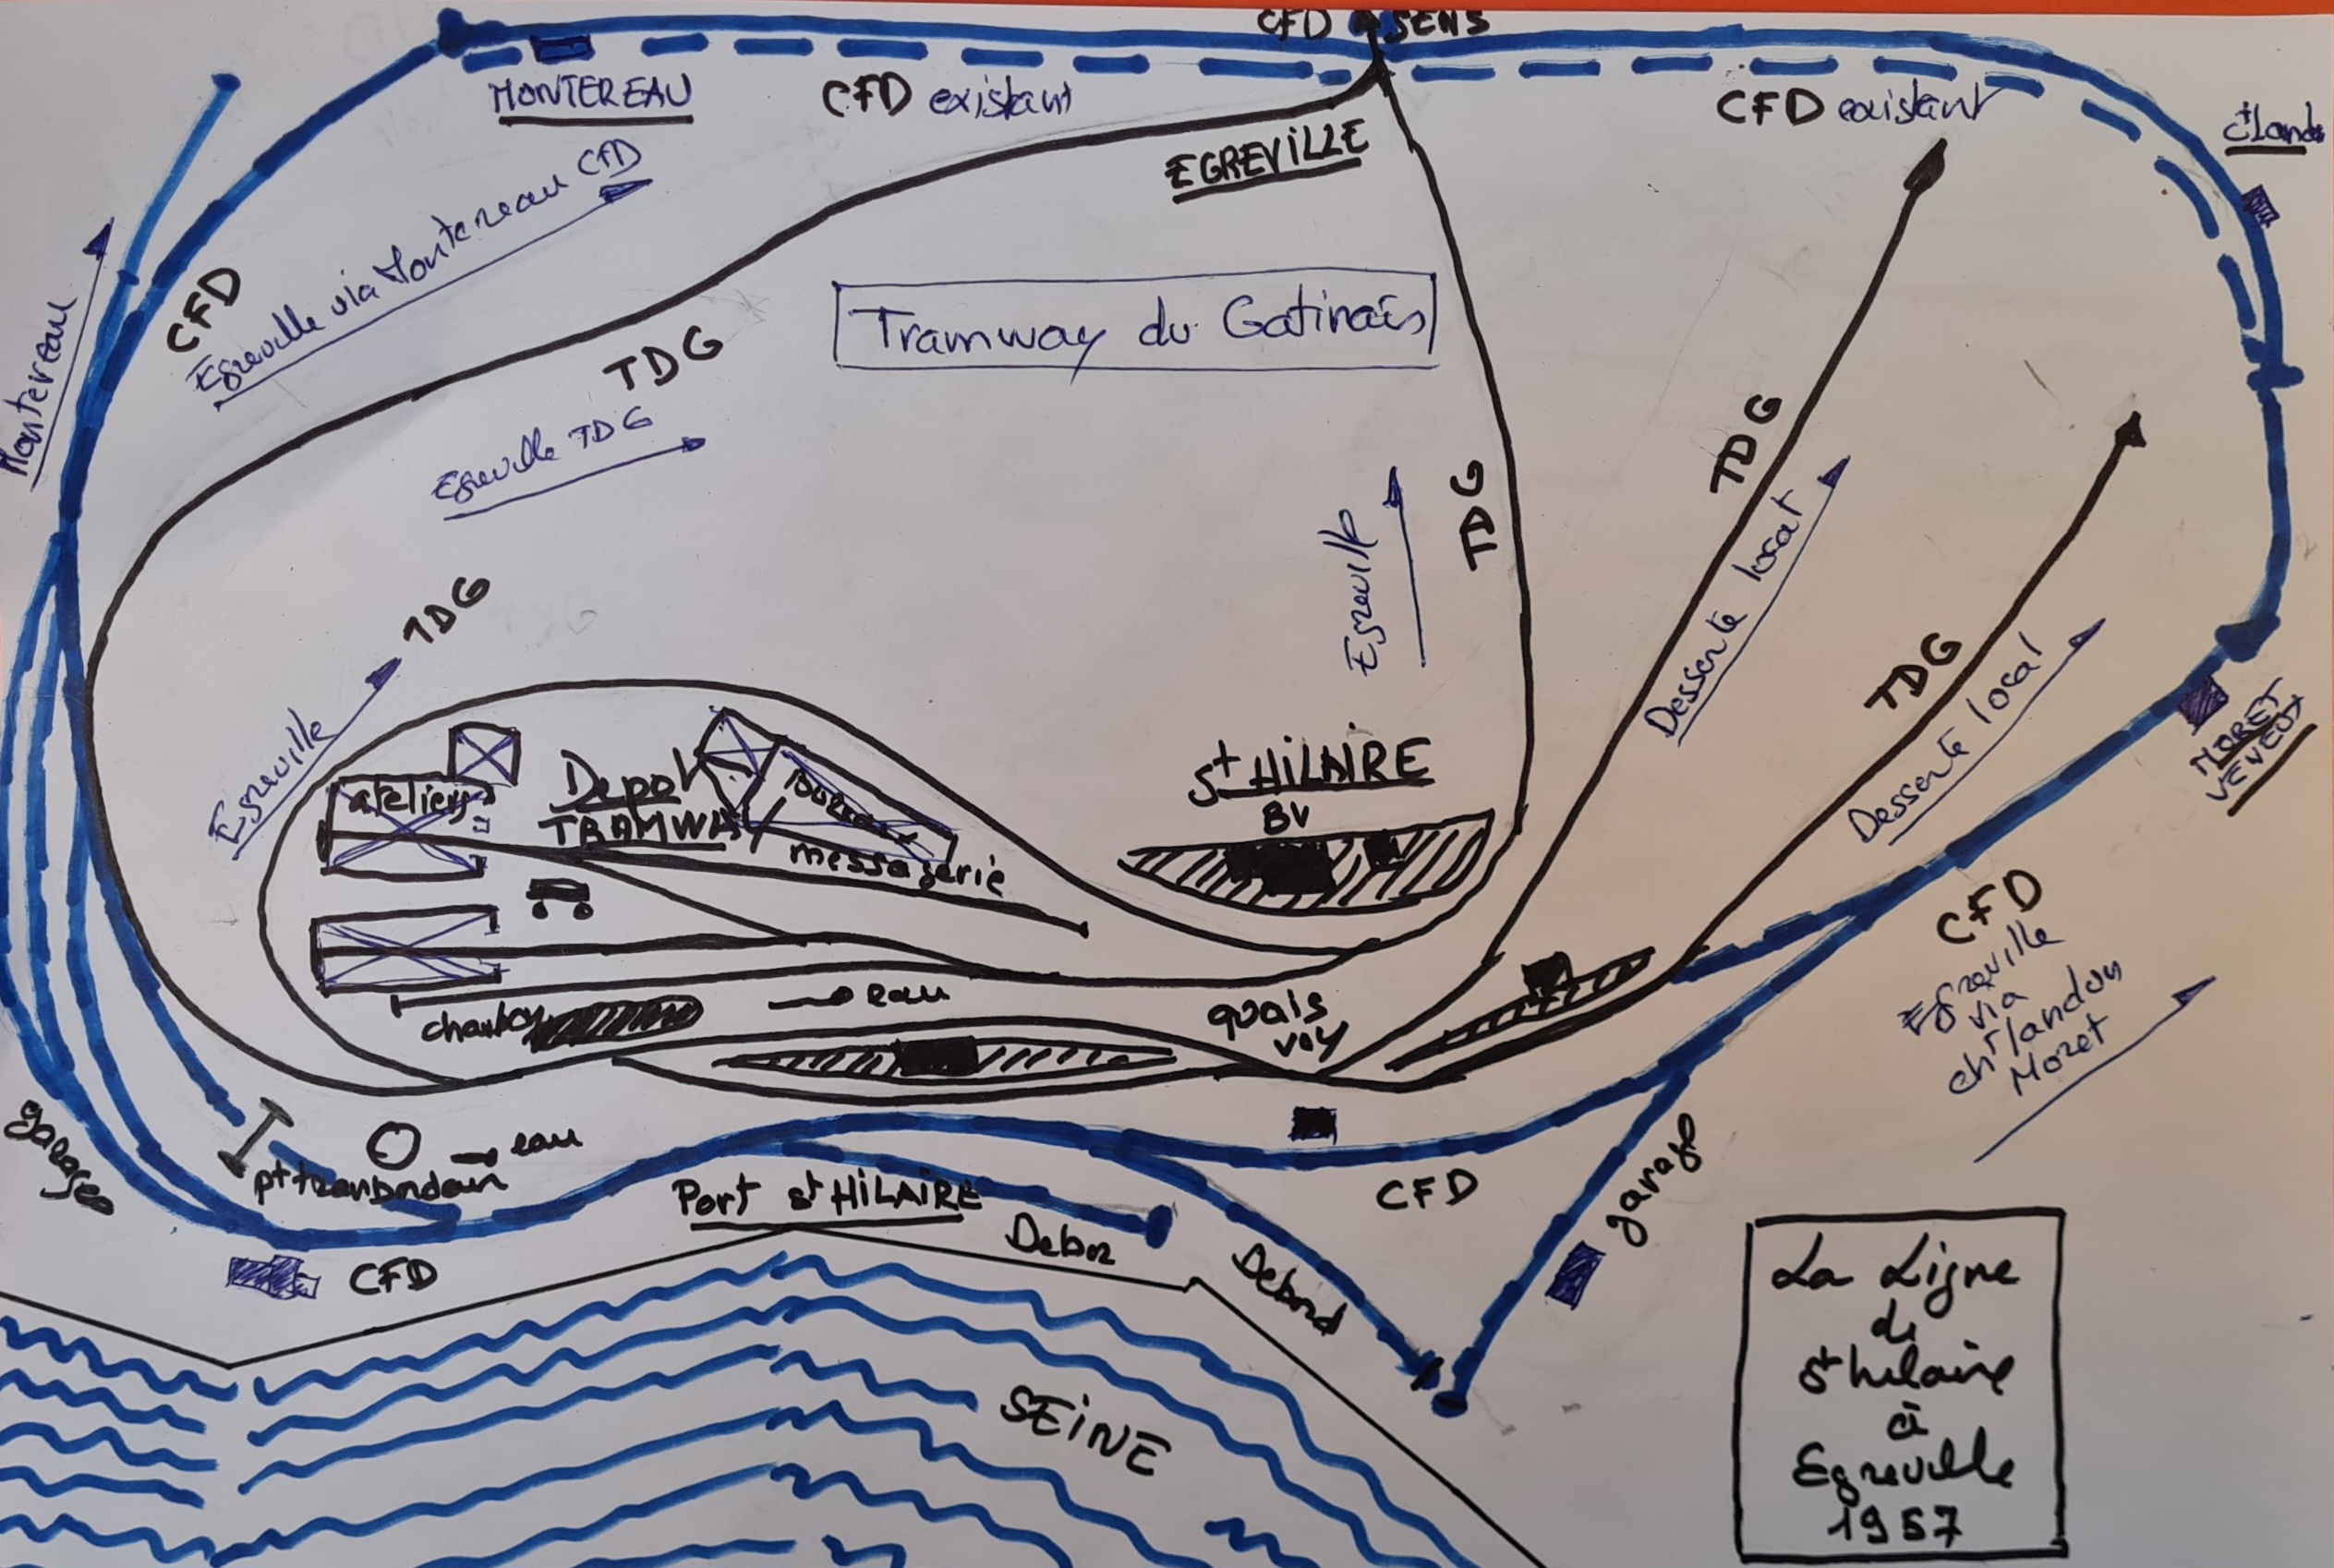 CFD SENS
MONTEREAU
CFD existant
CFD existant
EGREVILLE
Egreville via Montereau CFD
CFD
Montereau
Tramway du Gatinais
TDG
Egreville TDG
TDG
Egreville
TDG
Egreville
TDG
Desserte local
TDG
Desserte local
MORET
VENEUX
ateliers
Depot
TRAMWAY
messagerie
St HILAIRE
BV
charbon
eau
quais
voy
CFD
Egreville
via
cht landon
Moret
garages
eau
Port St HILAIRE
CFD
garage
CFD
Debor
Debord
SEINE
La Ligne
de
St hilaire
à
Egreville
1957